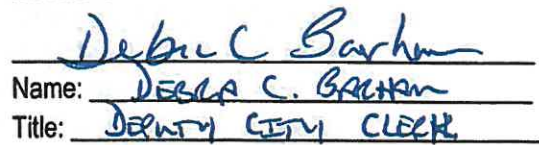 Debra C Barham
Name: DEBRA C. BARHAM
Title: DEPUTY CITY CLERK